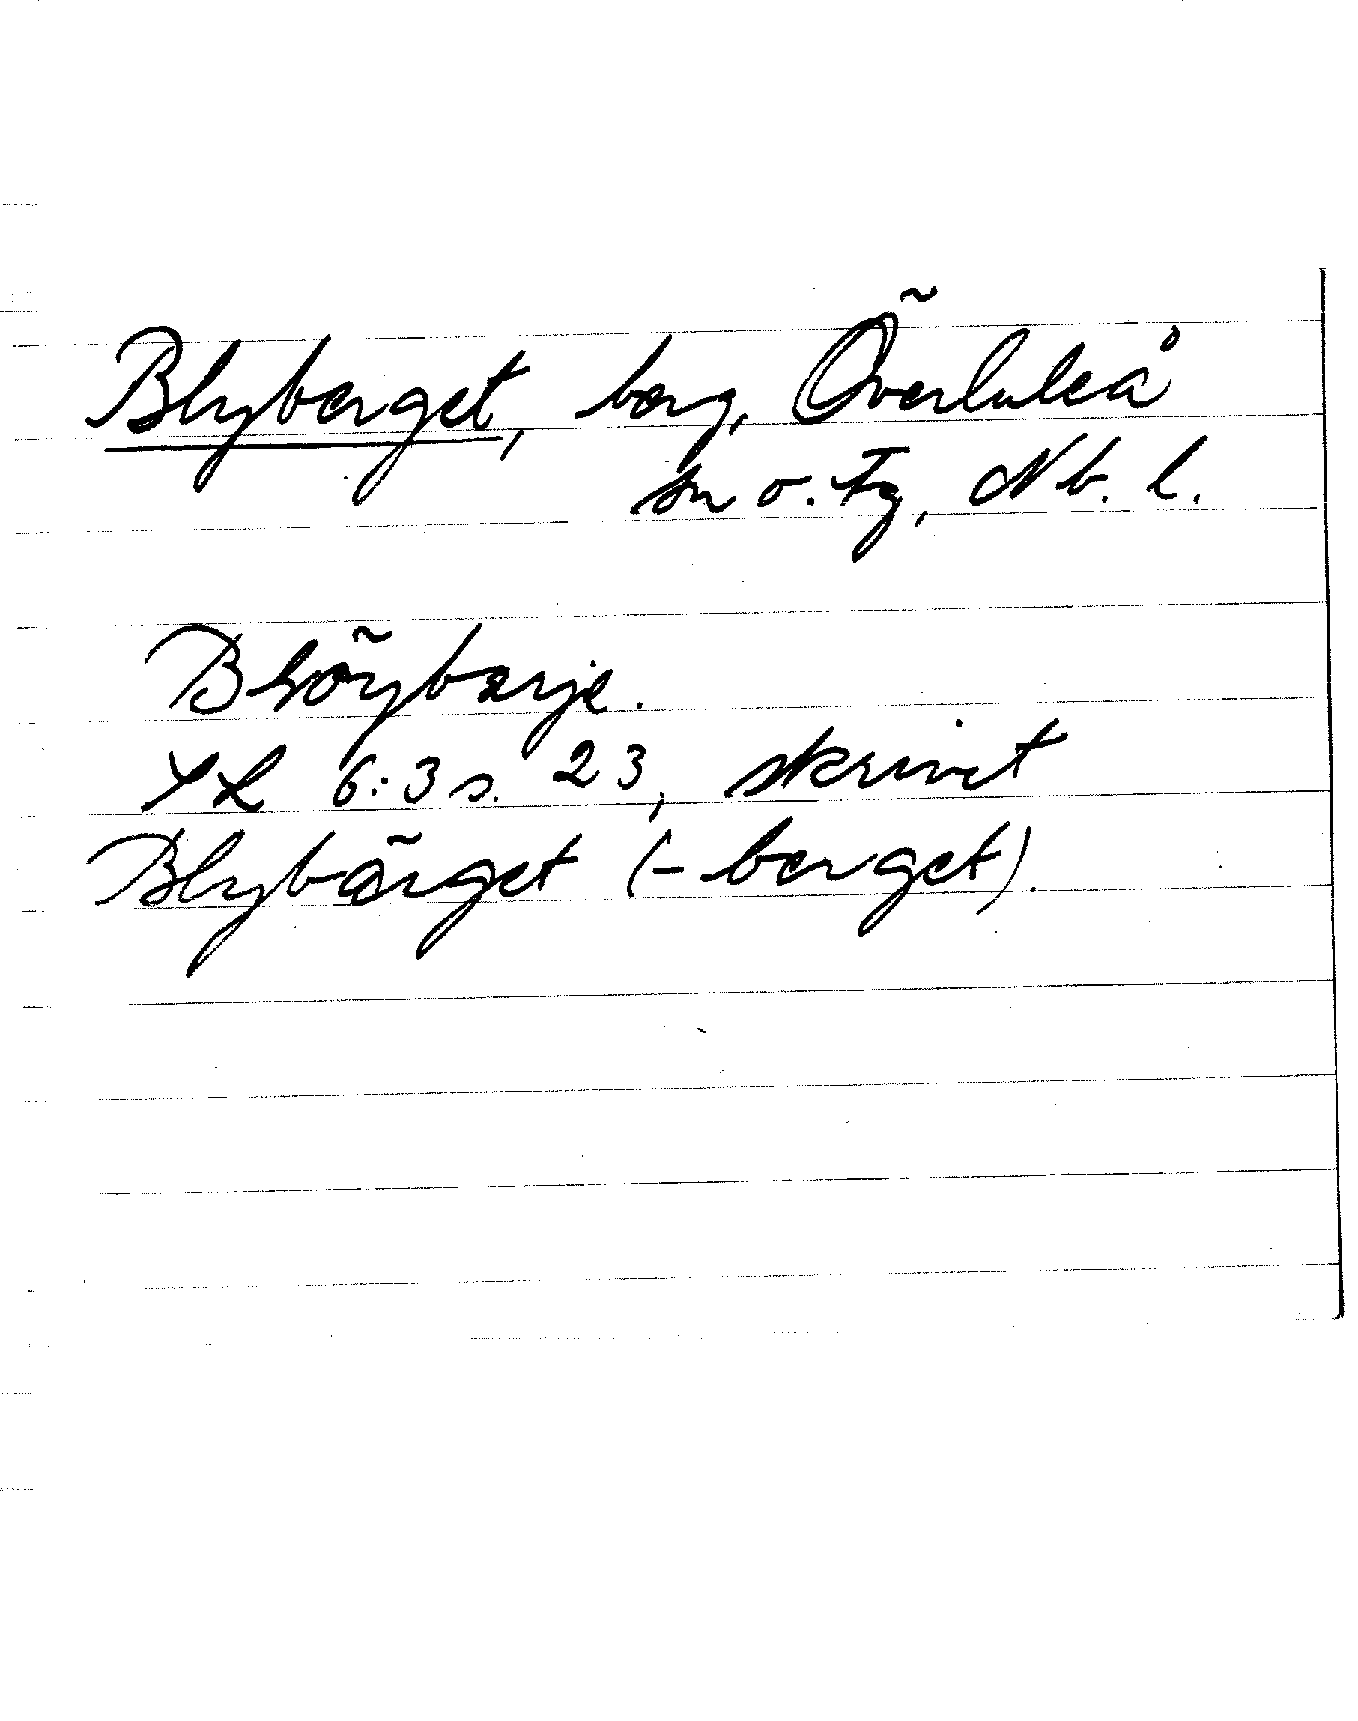 Blyberget, berg, Överluleå
sn o. tg, Nb. l.
Blöybarje.
XL 6:3 s. 23, skrivet
Blybärget (-berget).